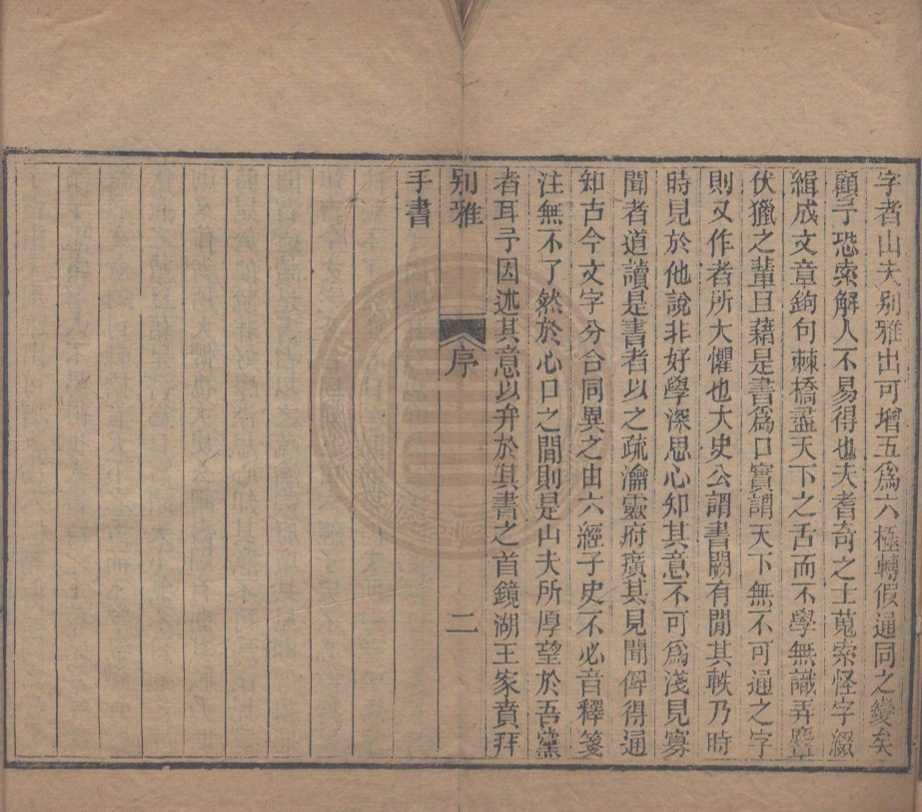 字者山夫别雅出可增五爲六極轉假通同之變矣
顧予恐索解人不易得也夫耆奇之士蒐索怪字綴
緝成文章鉤句棘槗盡天下之舌而不學無識弄麞
伏獵之輩且藉是書爲口實謂天下無不可通之字
則又作者所大懼也大史公謂書闕有間其軼乃時
時見於他說非好學深思心知其意不可爲淺見寡
聞者道讀是書者以之疏瀹靈府廣其見聞俾得通
知古今文字分合同異之由六經子史不必音釋箋
注無不了然於心口之間則是山夫所厚望於吾黨
者耳予因述其意以弁於其書之首鏡湖王家賁拜
别雅 序 二
手書